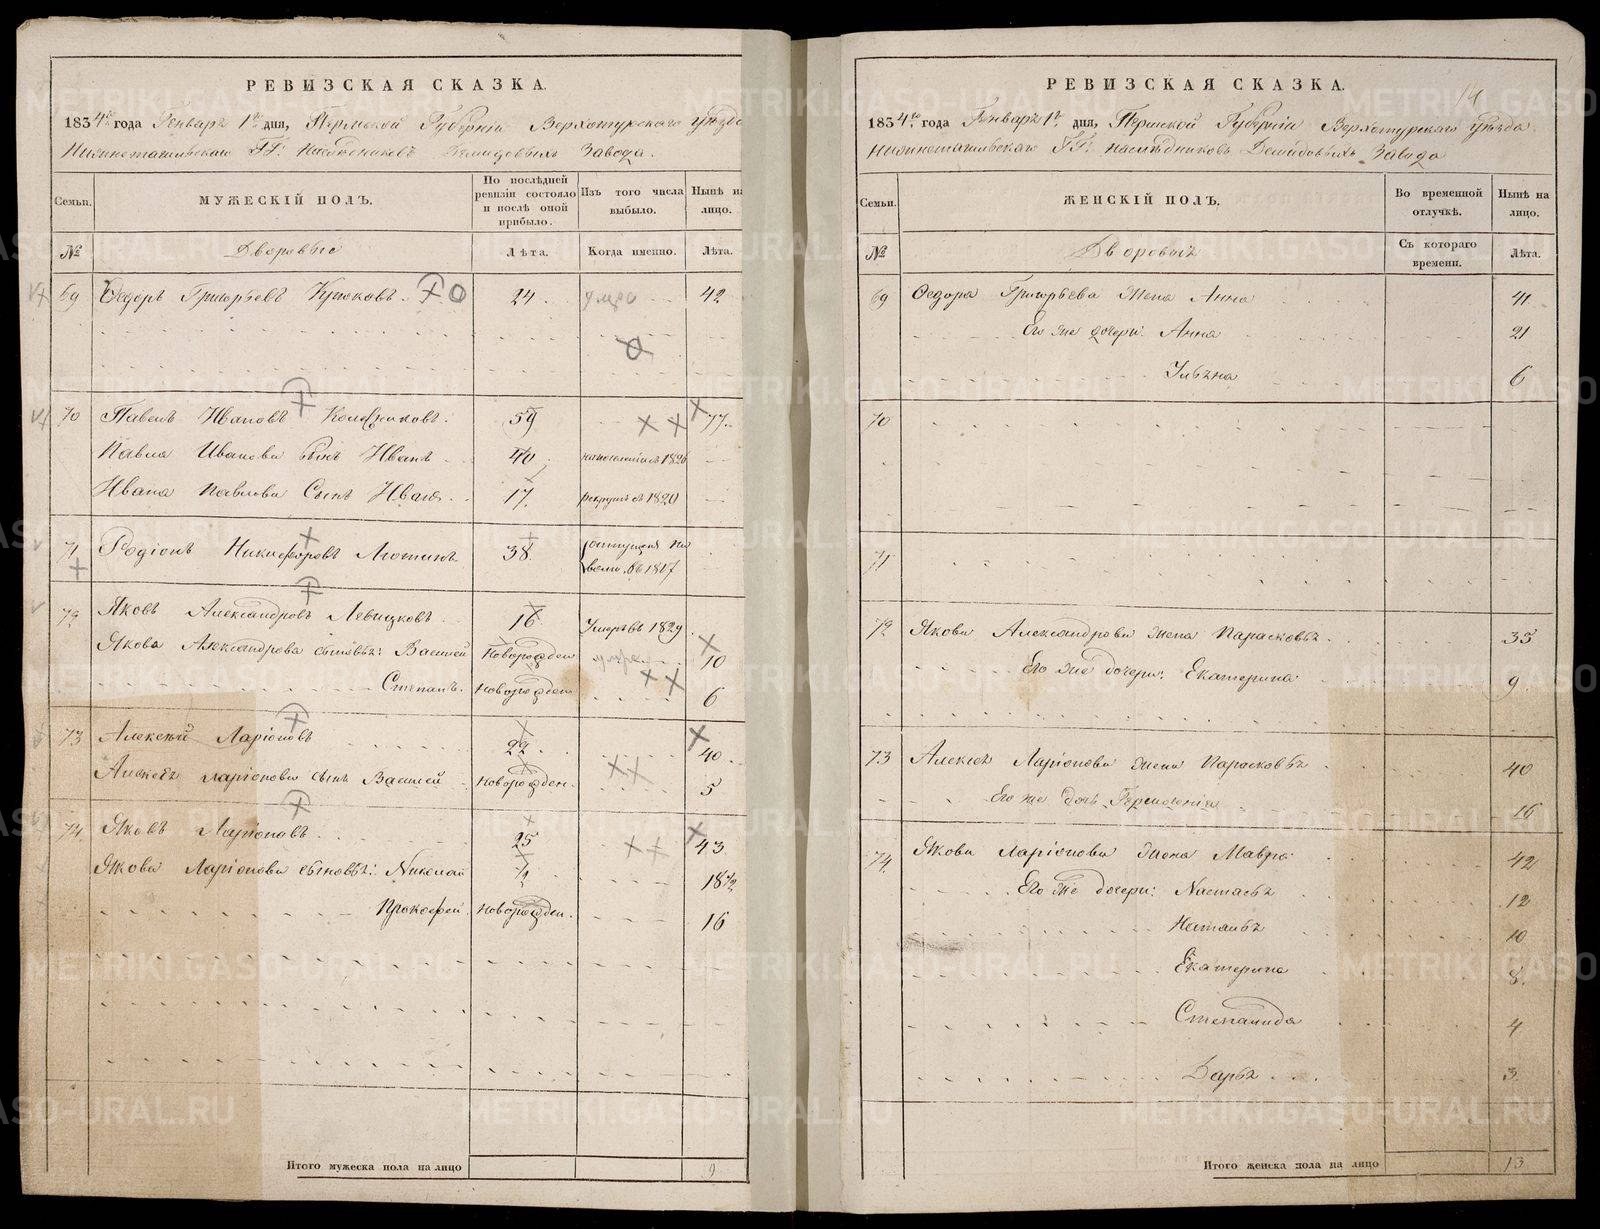 РЕВИЗСКАЯ СКАЗКА.
1834го года Генваря 1го дня, Пермской Губерніи Верхотурскаго уѣзда
Нижнетагильскаго ГГ: Наслѣдниковъ Демидовыхъ Завода.
Семьи. МУЖЕСКІЙ ПОЛЪ. По послѣдней ревизіи состояло и послѣ оной прибыло. Изъ того числа выбыло. Нынѣ на лицо.
№ Дворовые Лѣта. Когда именно. Лѣта.
69 Ѳедоръ Григорьевъ Крюковъ. 24. умре 42
70 Павелъ Ивановъ 59 77.
Павла Иванова сынъ Иванъ 40 1826
Ивана Павлова Сынъ Иванъ 17. рекрутъ въ 1820
71 Родіонъ Никифоровъ 38. отпущенъ на
волю въ 1817
72 Яковъ Александровъ Левицковъ. 16 Умеръ въ 1829.
Якова Александрова сыновья: Василей Новорожден умре 10
Степанъ. Новорожден 6
73 Алексѣй Ларіоновъ 22. 40.
Алексѣя Ларіонова сынъ Василей Новорожден. 5
74. Яковъ Ларіоновъ 25 43
Якова Ларіонова сыновья: Николай 1/2 18 1/2
Прокофей. Новорожден. 16
Итого мужеска пола на лицо 9
РЕВИЗСКАЯ СКАЗКА.
14
1834го года Генваря 1го дня, Пермской Губерніи Верхотурскаго уѣзда
Нижнетагильскаго ГГ: Наслѣдниковъ Демидовыхъ Завода
Семьи. ЖЕНСКІЙ ПОЛЪ. Во временной отлучкѣ. Нынѣ на лицо.
№ Дворовыхъ Съ котораго времени. Лѣта.
69 Ѳедора Григорьева Жена Анна 41
Его же дочери: Анна 21
Ульяна 6
70
71
72 Якова Александрова жена Парасковья 35
Его же дочери: Екатерина 9.
73 Алексѣя Ларіонова жена Парасковья 40
Его же дочь 16
74. Якова Ларіонова жена Мавра 42
Его же дочери: Настасья 12
Наталья 10
Екатерина 8.
Степанида 4
Дарья 3
Итого женска пола на лицо 13
METRIKI.GASO-URAL.RU